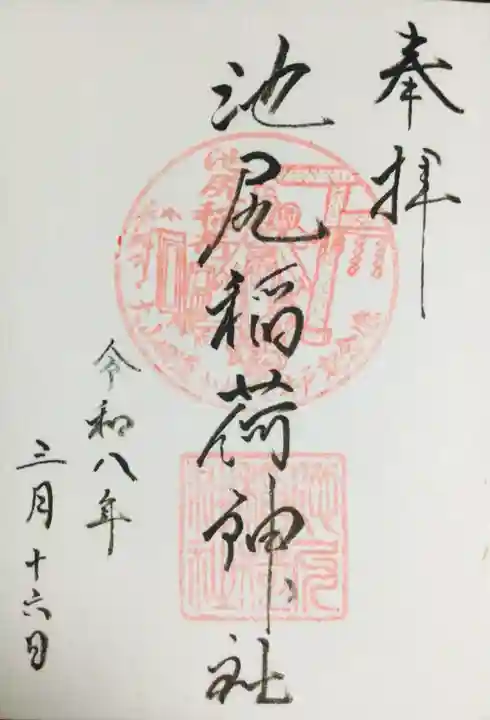 奉拝
池尻稲荷神社
令和八年
三月十六日